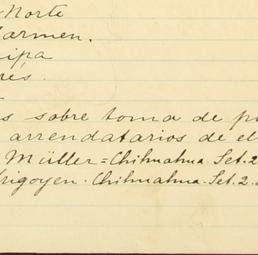 Norte
Carmen.
ipa
res.
s sobre toma de p
arrendatarios de el
Müller = Chihuahua Set. 2
rigoyen. Chihuahua. Set. 2.